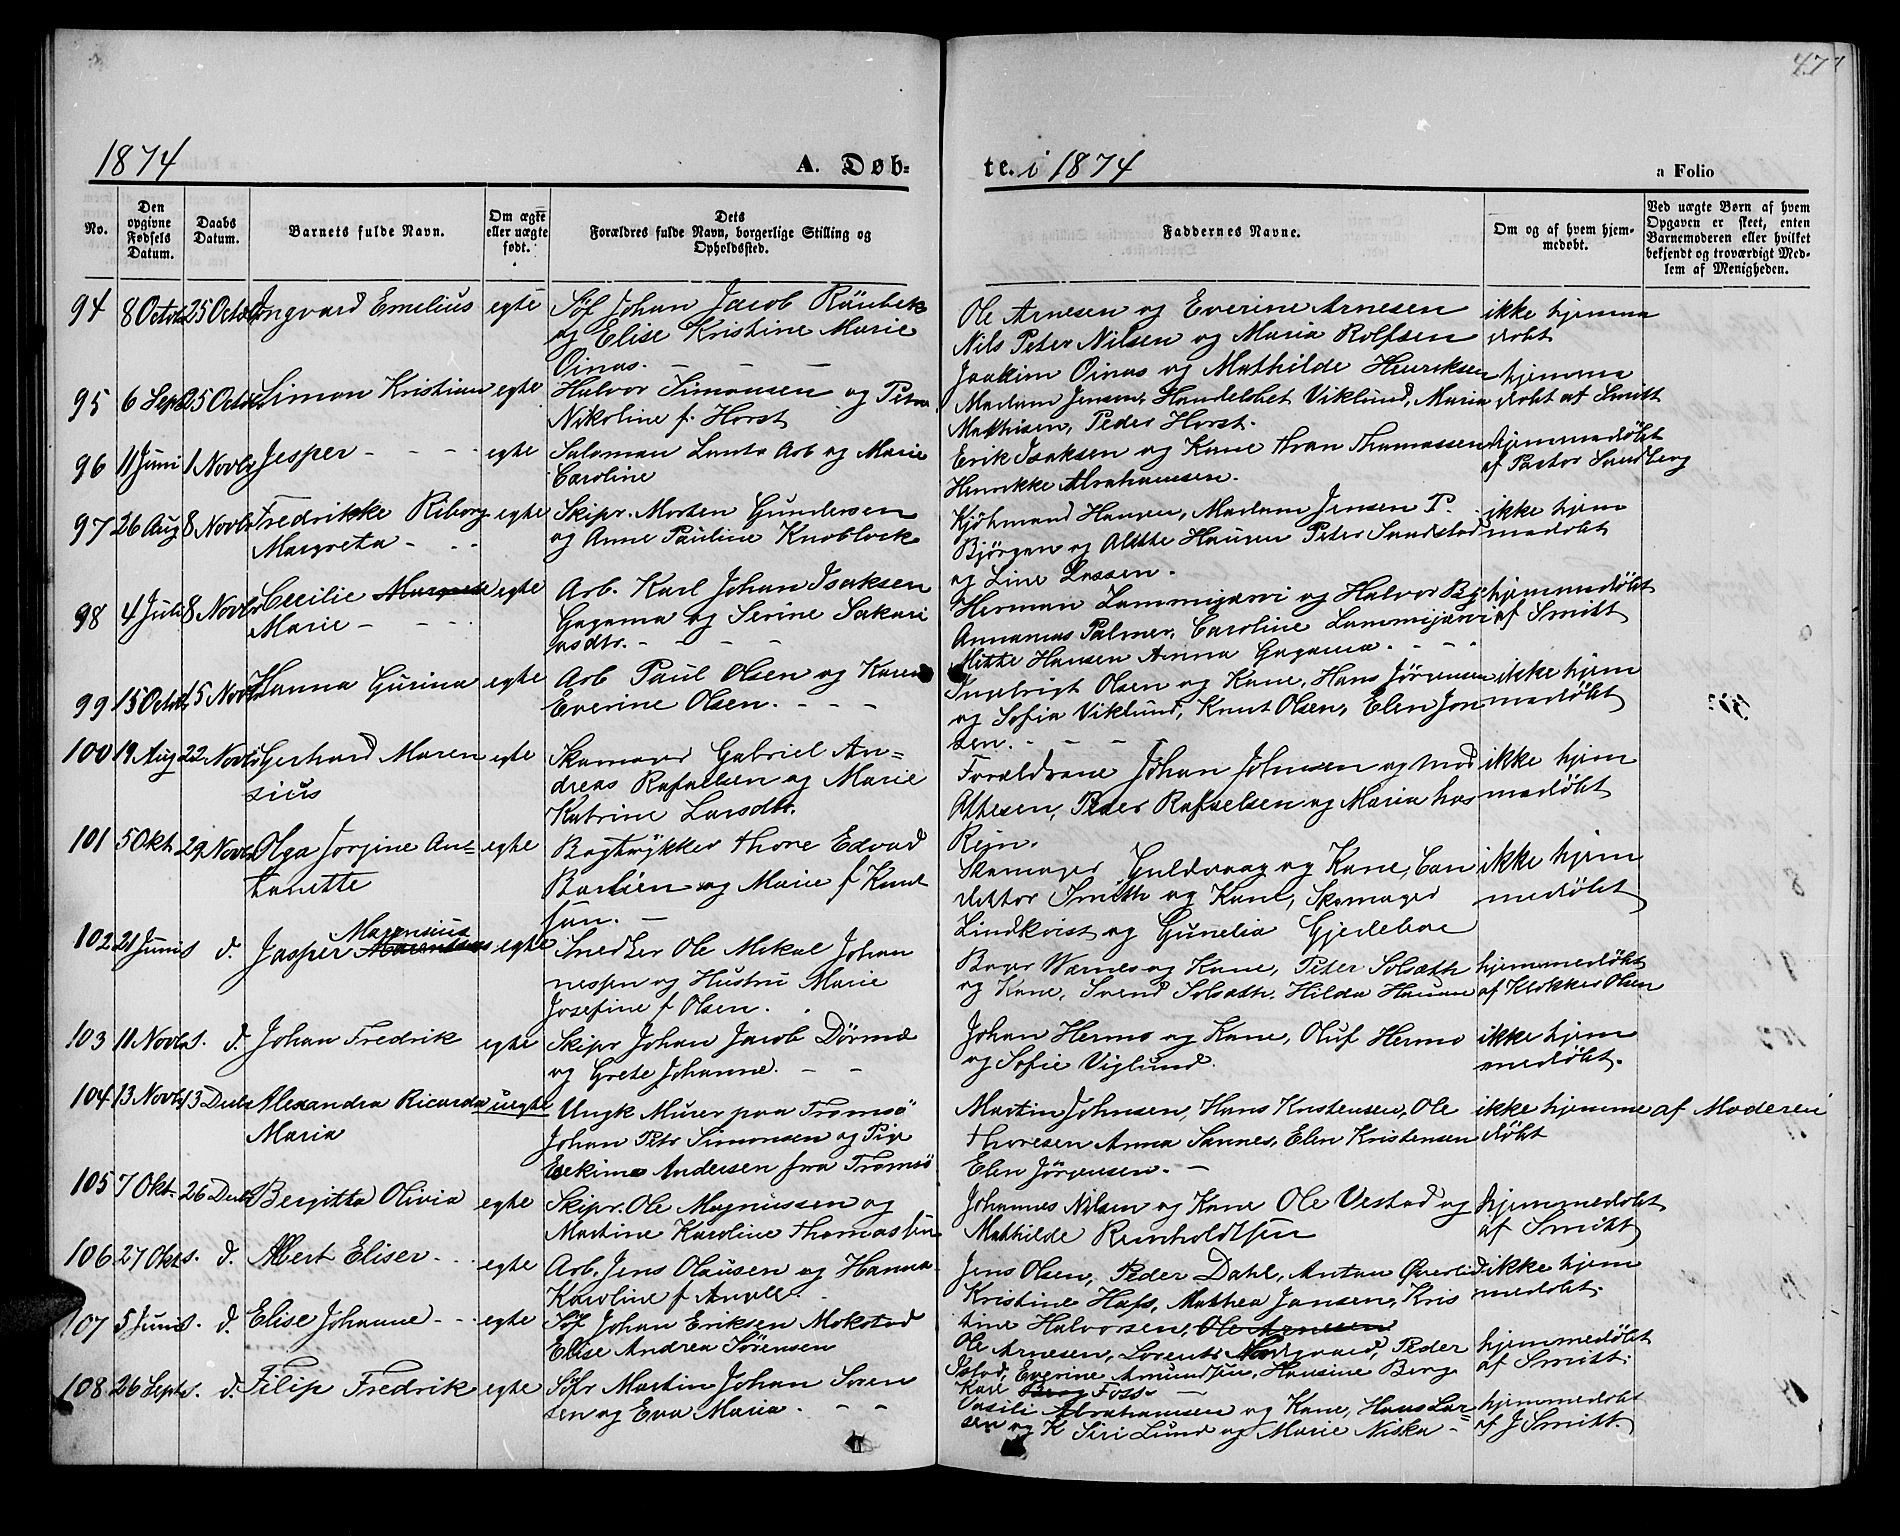 47
1874
A. Døb-
te. i 1874
a Folio
No.
Den opgivne Fødsels Datum.
Daabs Datum.
Barnets fulde Navn.
Om ægte eller uægte født.
Dets Forældres fulde Navn, borgerlige Stilling og Opholdssted.
Faddernes Navne.
Om og af hvem hjem-
medøbt.
Ved uægte Børn af hvem
Opgaven er skeet, enten
Barnemoderen eller hvilket
bekjendt og troværdigt Med-
lem af Menigheden.
94 8 Octob 25 Octob Ingvard Emelius egte
Søf Johan Jacob
og Elise Kristine Marie
Oinas. - - -
Ole Arnesen og Everine Arnesen
Nils Peter Nilsen og Maria Rolfsen
Joakim Oinas og Mathilde Henriksen
ikke hjemma
døbt
95 6 Sept 25 Octob Simon Kristian egte
Halvor Simonsen og Petra
Nikoline f. Horst
Madam Jensen, Viklund, Maria
Mathisen, Peder Horst.
hjemma
døbt af Smitt
96 11 Juni 1 Novb Jesper - - - egte
Salomon Lanto Arb og Marie
Caroline
Erik Isaksen og Kane Thomassen
Henrikke Abrahamsen.
hjemmedøbt
af Pastor Sandberg
97 26 Aug 8 Novb Fredrikke Riborg egte
Margreta - - -
Skipr. Morten Gundersen
og Anne Pauline Knoblock
Kjøbmand Hansen, Madam Jensen P.
Bjørgan og Hansen Peter Sandstad
og Line Lassen.
ikke hjem
medøbt
98 4 Juli 8 Novb Cecilie egte
Marie - - -
Arb. Karl Johan Isaksen
Gagama og Serine Sakari
asdtr. - - -
Herman Lammijarvi og Halvor By
Annanias Palmer, Caroline Lammijarvi
Mette Hansen Anna Gagama. - -
hjemmedøbt
af Smitt
99 15 Octob 15 Novb Hanna Gurina egte
Arb Paul Olsen og Karen
Everine Olsen. - - -
Ingebrigt Olsen og Kane, Hans Jørgensen
og Sofia Viklund, Knut Olsen, Elen Jon
sen. - - -
ikke hjem
medøbt
100 19 Aug 22 Novb Gerhard Maren egte
sius
Skomager Gabriel An=
dreas Rafaelsen og Marie
Katrine Larsdtr.
Forældrene Johan Johnsen og
Peder Rafaelsen og Maria
Rein.
ikke hjem
medøbt
101 5 Okt 29 Novb Olga Jorgine An= egte
tonette
Bogtrykker Thore Edvard
og Marie f Knud
sen. -
Skomager Guldvaag og Kane, Con
dektor Smith og Kane, Skomager
Lindkvist og Gunelia
ikke hjem
medøbt
102 21 Juni s. d. Jasper Marensius egte
Snedker Ole Mekal Johan
nessen og Hustru Marie
Josefine f Olsen.
Bager Wærnes og Kane, Peter Solsæth
og Kane, Svend Solsæth, Hilda
hjemmedøbt
af Klokker Olsen
103 11 Novb s. d. Johan Fredrik egte
Skipr Johan Jacob
og Grete Johanne. - -
Johan Hermo og Kane, Oluf Hermo
og Sofie Viglund.
ikke hjem
medøbt.
104 13 Novb 13 Decb Alexandra Ricarda uegte
Maria
Ungk Murer paa Tromsø
Johan Petr Simonsen og Pige
Andersen fra Tromsø
Martin Johnsen, Hans Kristensen, Ole
Thoresen Anna Sannes, Elen Kristensen
Elen Jørgensen. -
ikke hjemme
døbt
af Moderen
105 7 Okt. 26 Decb Bergitta Olivia egte
Skipr. Ole Magnussen og
Martine Karoline Thomassen
Johannes Nilsen og Kane Ole Vestad og
Mathilde Reinholdtsen
hjemmedøbt
af Smitt
106 27 Okt s. d. Albert Eliser - - egte
Arb. Jens Olausen og Hanna
Karoline f
Jens Olsen, Peder Dahl, Anton
Kristine Mathea Jansen, Kris
tine Halvorsen, Ole Arnesen
ikke hjem
medøbt.
107 5 Juni s. d. Elise Johanne - - egte
Søf Johan Eriksen Mokstad
Elise Andrea Sørensen
Ole Arnesen, Lorents Peder
Everine Amundsen, Hansine Berg
Kari Berg Foss -
hjemmedøbt
af Smitt.
108 26 Sept s. d. Filip Fredrik egte
Søfr Martin Johan Soren
sen og Eva Maria. - -
Vasili Abrahamsen og Kane, Hans Lar=
sen og K Siri Lund og Marie Niska -
hjemmedøbt
af J Smitt.